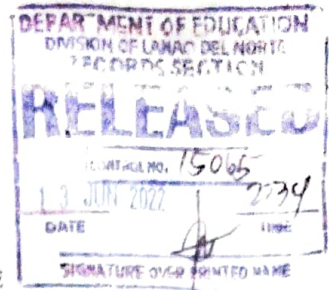 DEPARTMENT OF EDUCATION
DIVISION OF LANAO DEL NORTE
RECORDS SECTION
RELEASED
CONTROL NO. 15065
13 JUN 2022 2:34
DATE TIME
SIGNATURE OVER PRINTED NAME